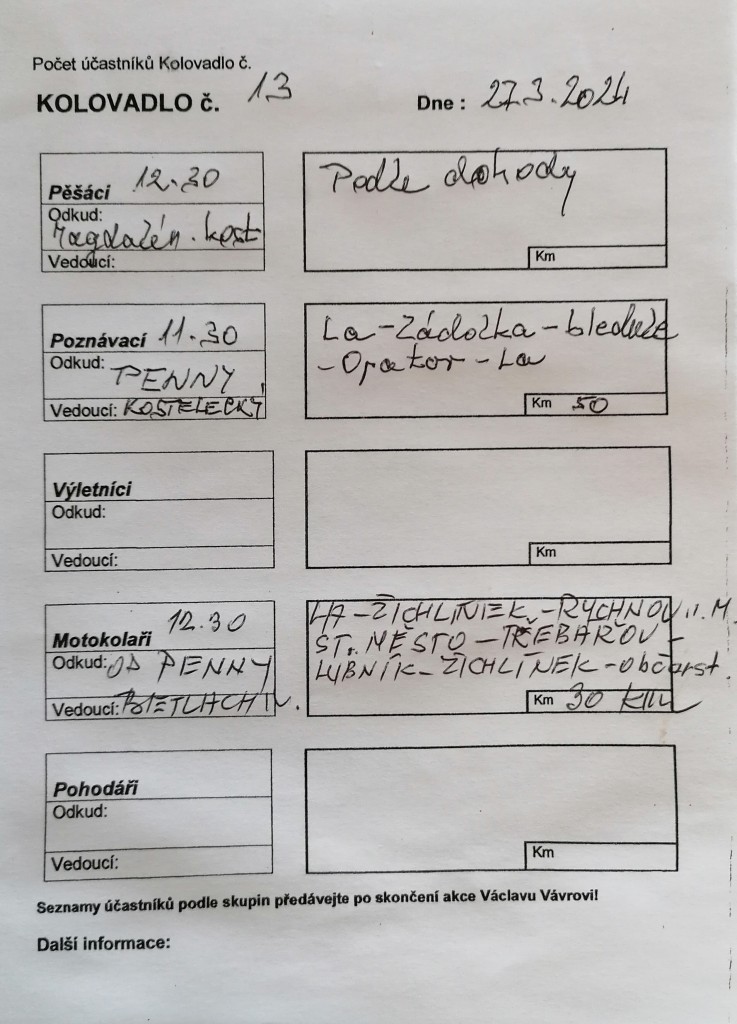 Počet účastníků Kolovadlo č.
KOLOVADLO č. 13 Dne : 27.3.2024
Pěšáci 12.30
Odkud:
Magdalén. kost
Vedoucí:
Podle dohody
Km
Poznávací 11.30
Odkud: PENNY
Vedoucí: KOSTELECKÝ
La - Zádolka -
- Opatov - La
Km 50
Výletníci
Odkud:
Vedoucí:
Km
Motokolaři 12.30
Odkud: OD PENNY
Vedoucí:
LA - ŽICHLINEK - RYCHNOV n. M.
ST. MĚSTO - TŘEBAŘOV -
LUBNÍK - ŽICHLÍNEK - občerst.
Km 30 km
Pohodáři
Odkud:
Vedoucí:
Km
Seznamy účastníků podle skupin předávejte po skončení akce Václavu Vávrovi!
Další informace: